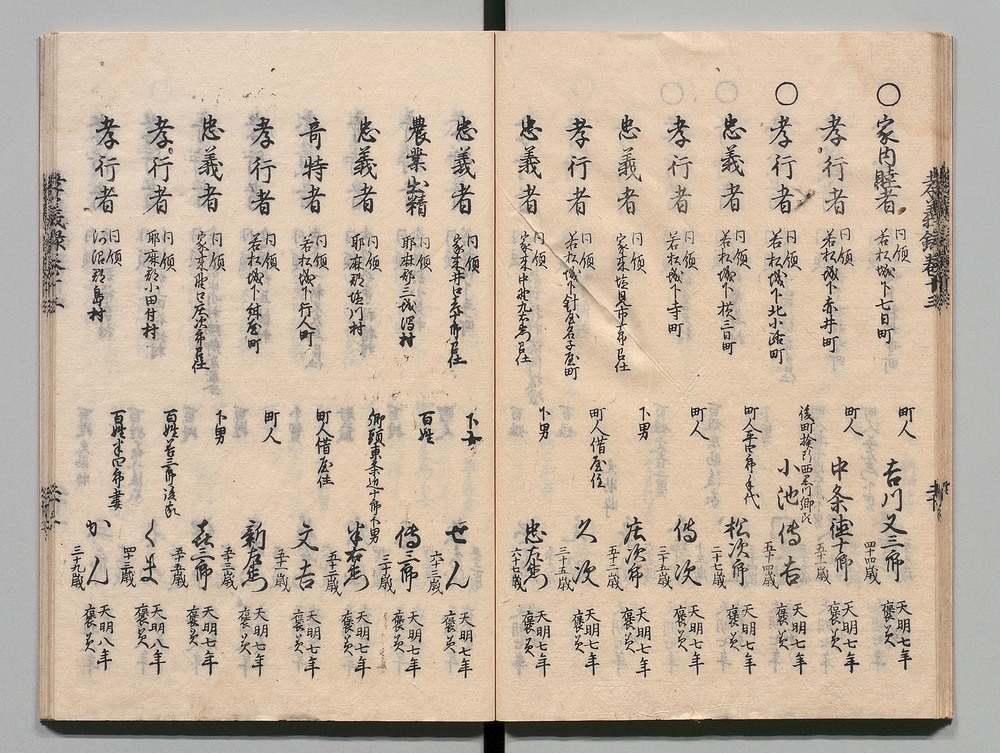 孝義録 巻十三
○ 家内睦者 同領 若松城下七日町 町人 吉川又三郎 四十四歳 天明七年 褒美
孝行者 同領 若松城下赤井町 町人 中条 五十二歳 天明七年 褒美
○ 孝行者 同領 若松城下北小路町 小池傳吉 五十四歳 天明七年 褒美
忠義者 同領 若松城下横三日町 町人平四郎手代 松次郎 二十七歳 天明七年 褒美
孝行者 同領 若松城下寺町 町人 傳次 三十五歳 天明七年 褒美
忠義者 同領 家来 召仕 下男 庄次郎 五十二歳 天明七年 褒美
孝行者 同領 若松城下針屋名子屋町 町人借屋住 久次 三十五歳 天明七年 褒美
忠義者 同領 家来 召仕 下男 忠左衛門 六十七歳 天明七年 褒美
忠義者 同領 家来井口 召仕 下女 せん 六十二歳 天明七年 褒美
農業出精 同領 耶麻郡三城潟村 百姓 傳三郎 三十歳 天明七年 褒美
忠義者 同領 耶麻郡塩川村 下男 半右衛門 天明七年 褒美
奇特者 同領 若松城下行人町 町人借屋住 文吉 五十一歳 天明七年 褒美
孝行者 同領 若松城下 町 町人 新右衛門 五十三歳 天明七年 褒美
忠義者 同領 家来野口庄次郎召仕 下男 喜三郎 五十五歳 天明七年 褒美
孝行者 同領 耶麻郡小田付村 百姓 くま 四十三歳 天明八年 褒美
孝行者 同領 河沼郡島村 百姓半四郎妻 かん 三十九歳 天明八年 褒美
孝義録 巻十三